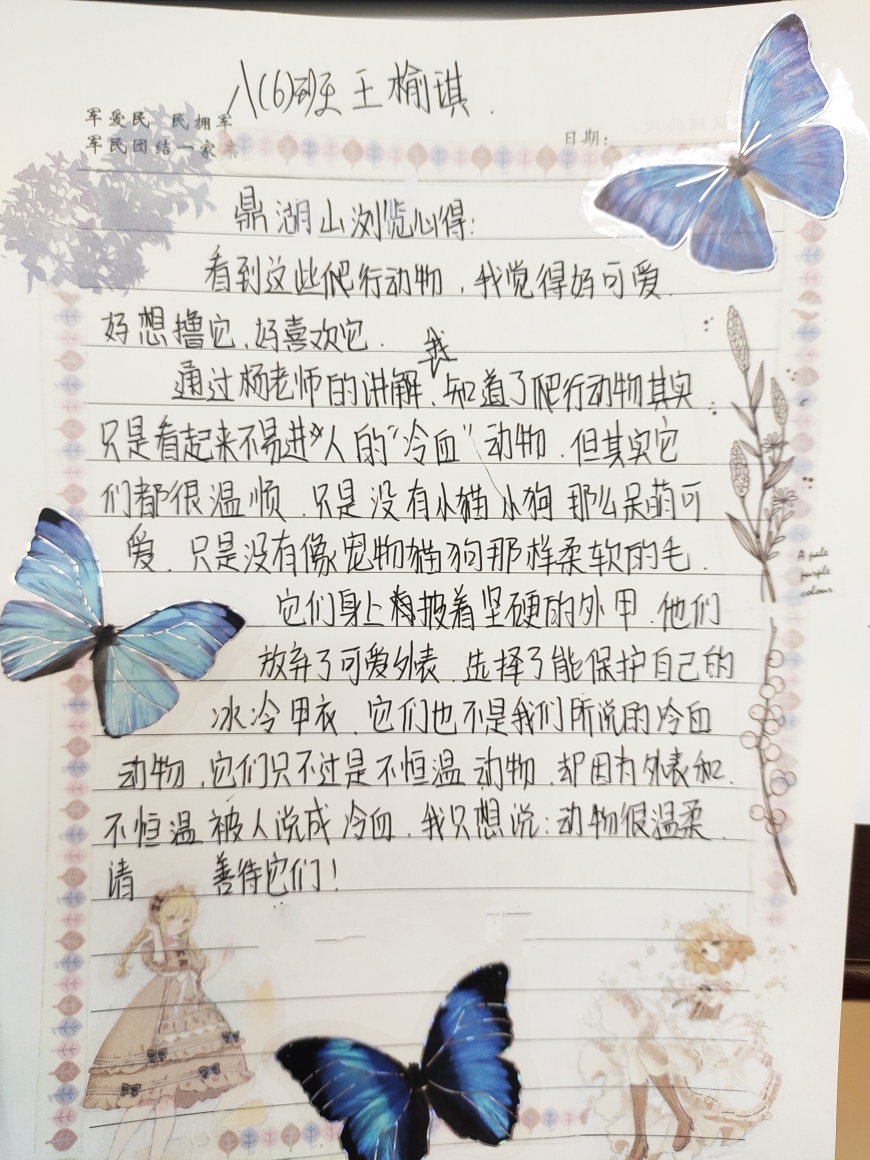 八(6)班 王榆琪.
军爱民 民拥军
军民团结一家亲
日期:
鼎湖山浏览心得:
看到这些爬行动物,我觉得好可爱.
好想撸它,好喜欢它.
通过杨老师的讲解,我知道了爬行动物其实
只是看起来不易进人的“冷血”动物,但其实它
们都很温顺,只是没有小猫小狗那么呆萌可
爱,只是没有像宠物猫狗那样柔软的毛.
它们身上披着坚硬的外甲,他们
放弃了可爱外表,选择了能保护自己的
冰冷甲衣,它们也不是我们所说的冷血
动物,它们只不过是不恒温动物,却因为外表和.
不恒温被人说成冷血,我只想说:动物很温柔.
请 善待它们!
A pale
purple
colour